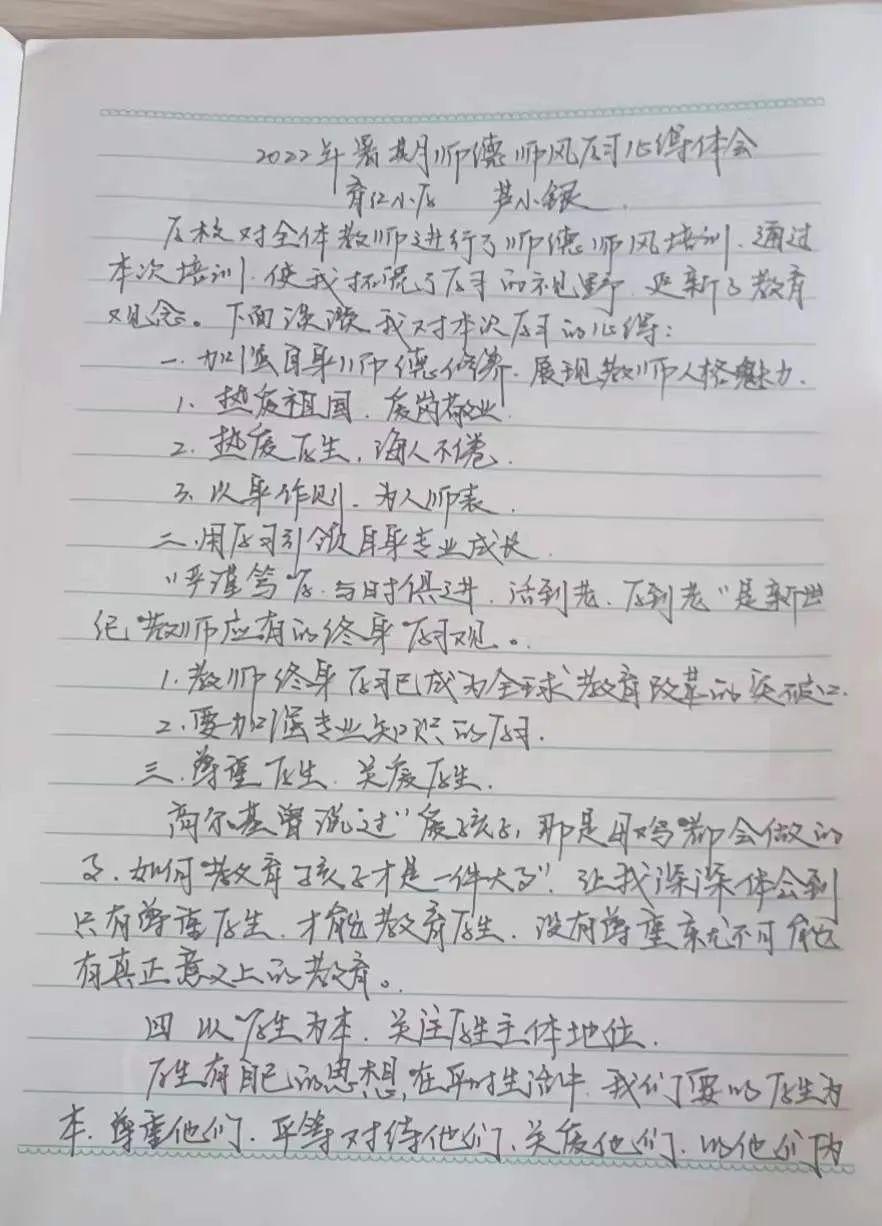 2022年暑期师德师风学习心得体会
育仁小学 芦小银
学校对全体教师进行了师德师风培训.通过
本次培训.使我拓宽了学习的视野.更新了教育
观念。下面谈谈我对本次学习的心得:
一.加强自身师德修养.展现教师人格魅力.
1.热爱祖国.爱岗敬业.
2.热爱学生,诲人不倦.
3.以身作则.为人师表.
二.用学习引领自身专业成长.
"严谨笃学.与时俱进.活到老.学到老"是新世
纪教师应有的终身学习观。
1.教师终身学习已成为全球教育改革的突破口.
2.要加强专业知识的学习.
三.尊重学生.关爱学生.
高尔基曾说过"爱孩子,那是母鸡都会做的
事.如何教育孩子才是一件大事".让我深深体会到
只有尊重学生.才能教育学生.没有尊重就不可能
有真正意义上的教育。
四 以学生为本.关注学生主体地位.
学生有自己的思想,在平时生活中.我们要以学生为
本.尊重他们.平等对待他们、关爱他们.以他们为